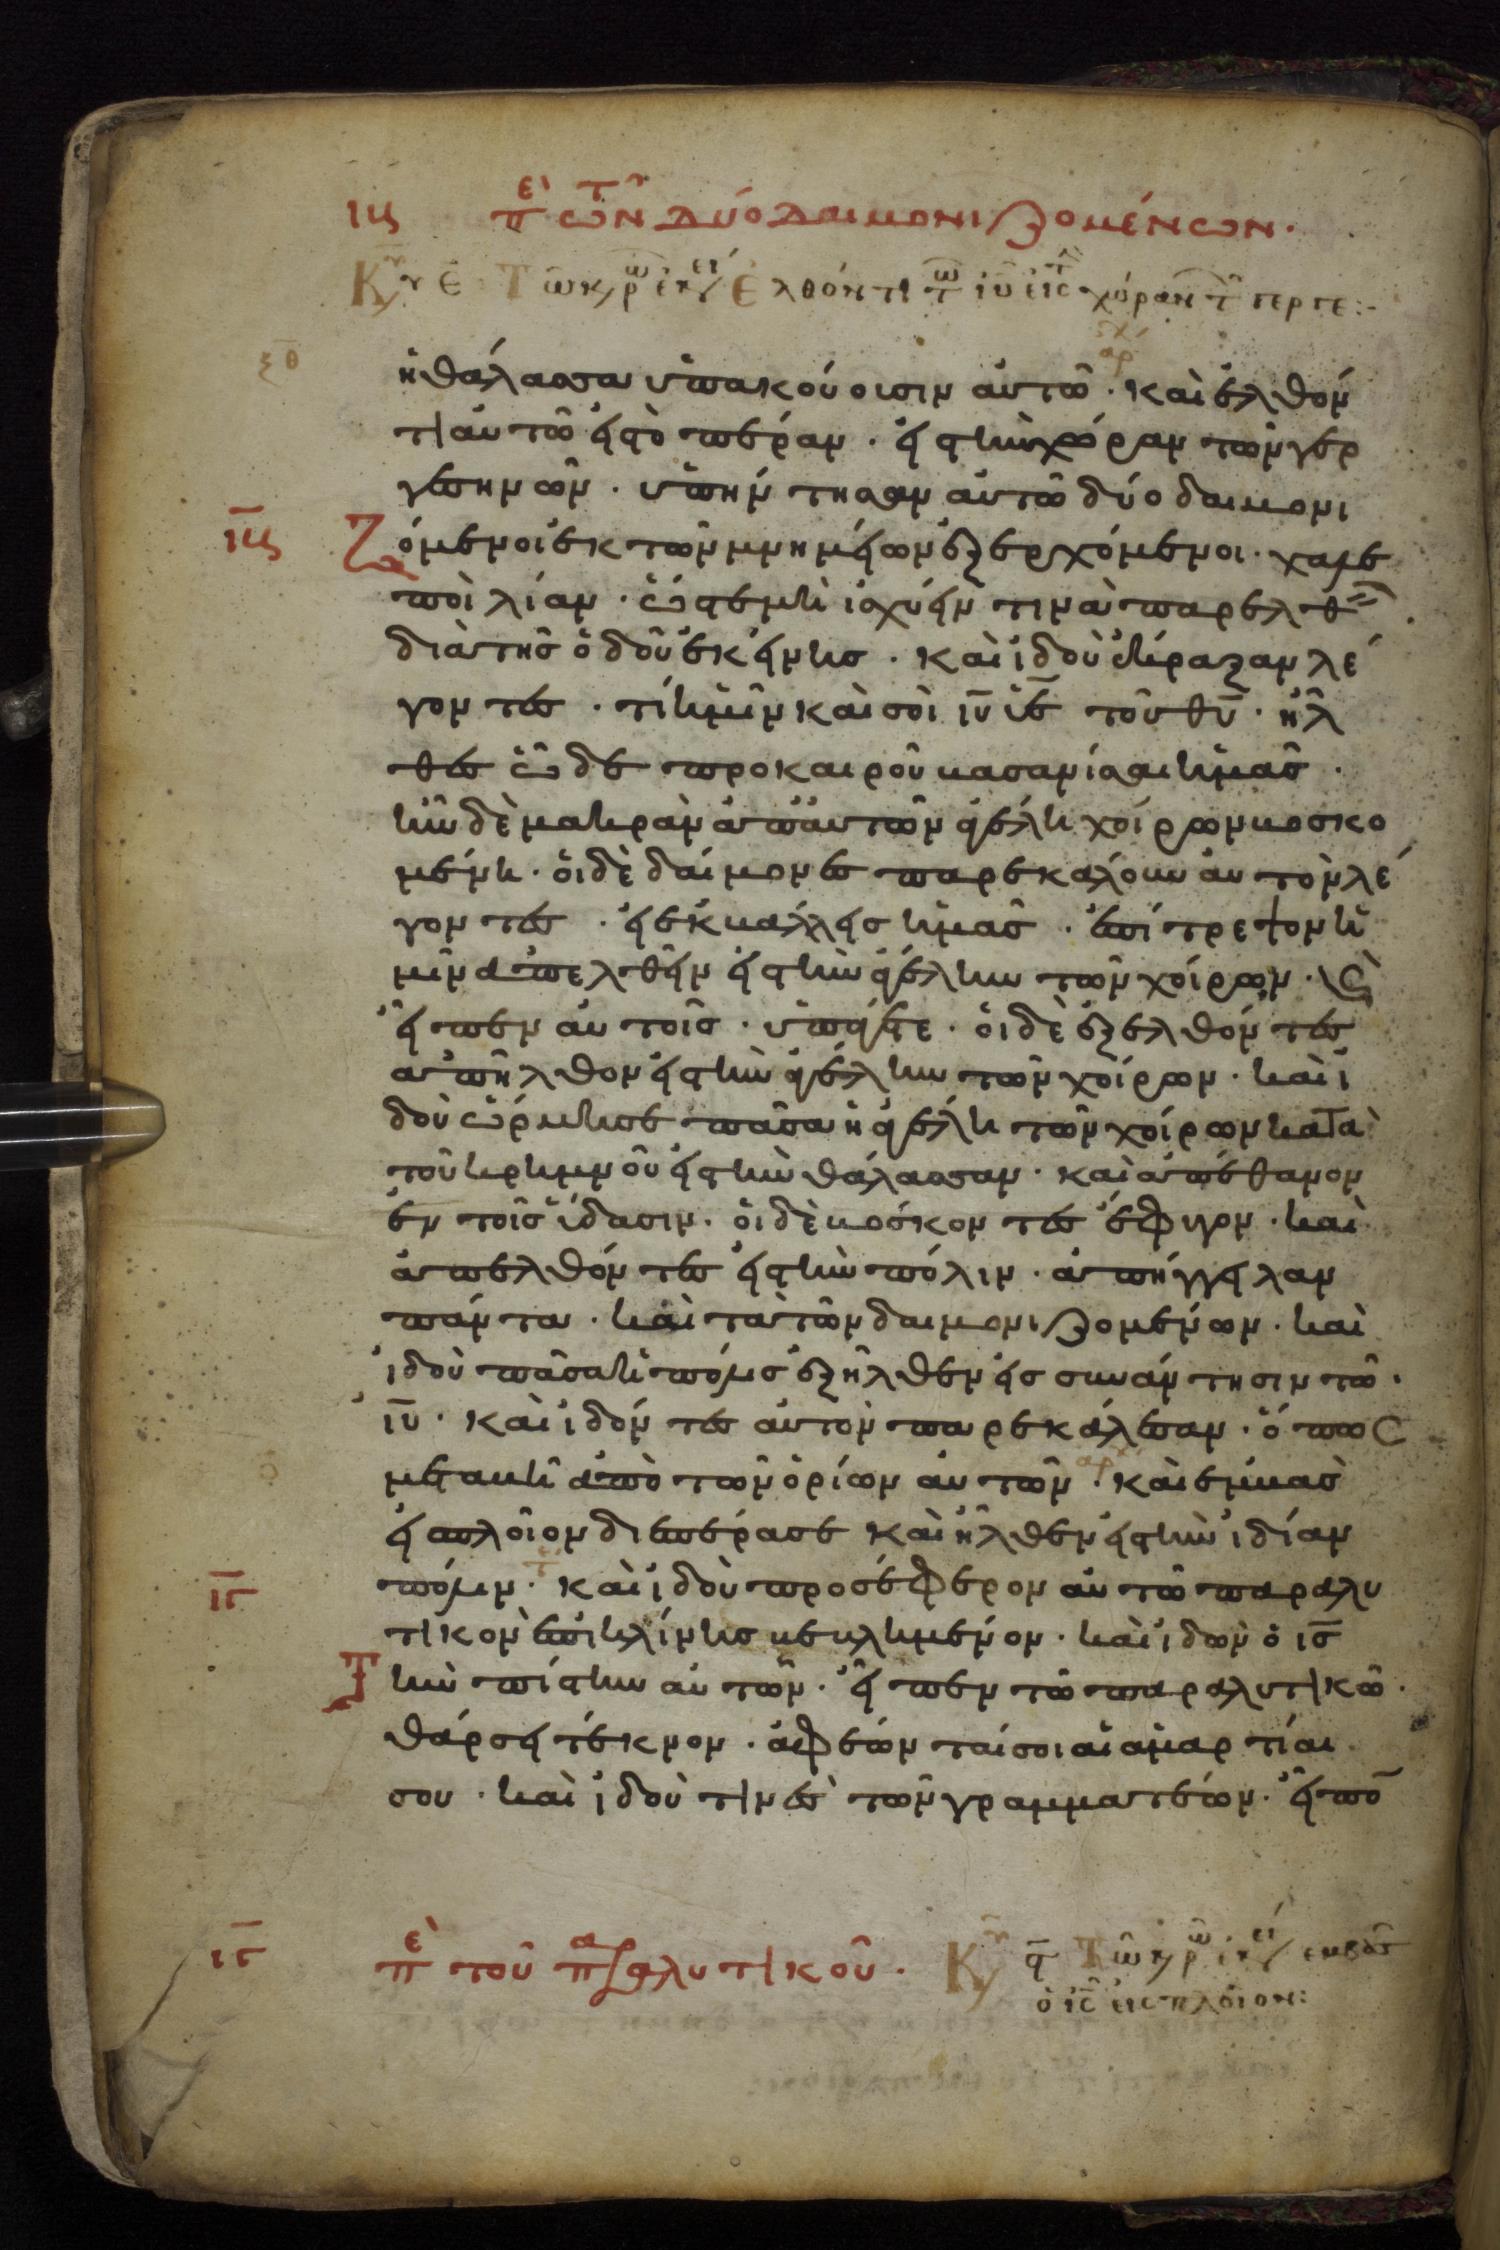 ιβ πε τῶν δύο δαιμονιζομένων.
Κυ ε Τῶ κρῶ ἐκεί Ἐλθόντι τω ιυ εἰς τ χώραν τ γεργε:-
ἡ θάλασσα ὑπακούουσιν αὐτῶ · καὶ ἐλθόν
τι αὐτῶ εἰς τὸ πέραν · εἰς τὴν χώραν τῶν γερ
γεσηνῶν · ὑπήντησαν αὐτῶ δύο δαιμονι
ζόμενοι ἐκ τῶν μνημείων ἐξερχόμενοι · χαλε
ποὶ λίαν · ὥστε μὴ ἰσχύειν τινὰ παρελθεῖν
διὰ τῆς ὁδοῦ ἐκείνης · καὶ ἰδοὺ ἔκραξαν λέ
γοντες · τί ἡμῖν καὶ σοὶ ιυ υἱὲ τοῦ θυ · ἦλ
θες ὧδε προ καιροῦ βασανίσαι ἡμᾶς ·
ἦν δὲ μακρὰν ἀπ αὐτῶν ἀγέλη χοίρων βοσκο
μένη · οἱ δὲ δαίμονες παρεκάλουν αὐτὸν λέ
γοντες · εἰ ἐκβάλλεις ἡμᾶς · ἐπίτρεψον ἡ
μῖν ἀπελθεῖν εἰς τὴν ἀγέλην τῶν χοίρων · καὶ
εἶπεν αὐτοῖς · ὑπάγετε · οἱ δὲ ἐξελθόντες
ἀπῆλθον εἰς τὴν ἀγέλην τῶν χοίρων · καὶ ἰ
δοὺ ὥρμησε πᾶσα ἡ ἀγέλη τῶν χοίρων κατὰ
τοῦ κρημνοῦ εἰς τὴν θάλασσαν · καὶ ἀπέθανον
ἐν τοῖς ὕδασιν · οἱ δὲ βόσκοντες ἔφυγον · καὶ
ἀπελθόντες εἰς τὴν πόλιν · ἀπήγγειλαν
πάντα · καὶ τὰ τῶν δαιμονιζομένων · καὶ
ἰδοὺ πᾶσα ἡ πόλις ἐξῆλθεν εἰς συνάντησιν τῶ ·
ιυ · καὶ ἰδόντες αὐτὸν παρεκάλεσαν · ὅπως
μεταβῆ ἀπὸ τῶν ὁρίων αὐτῶν · καὶ ἐμβὰς
εἰς πλοῖον διεπέρασε καὶ ἦλθεν εἰς τὴν ἰδίαν
πόλιν · καὶ ἰδοὺ προσέφερον αὐτῶ παραλυ
τικὸν ἐπὶ κλίνης βεβλημένον · καὶ ἰδὼν ὁ ις
τὴν πίστιν αὐτῶν · εἶπεν τῶ παραλυτικῶ ·
θάρσει τέκνον · ἀφέωνταί σοι αἱ ἁμαρτίαι
σου · καὶ ἰδού τινες τῶν γραμματέων · εἶπον
ιγ πε τοῦ παραλυτικοῦ ·
Κυ Τῶ κρῶ ἐκεί ἐμβὰς
ὁ ις εἰς πλοῖον: